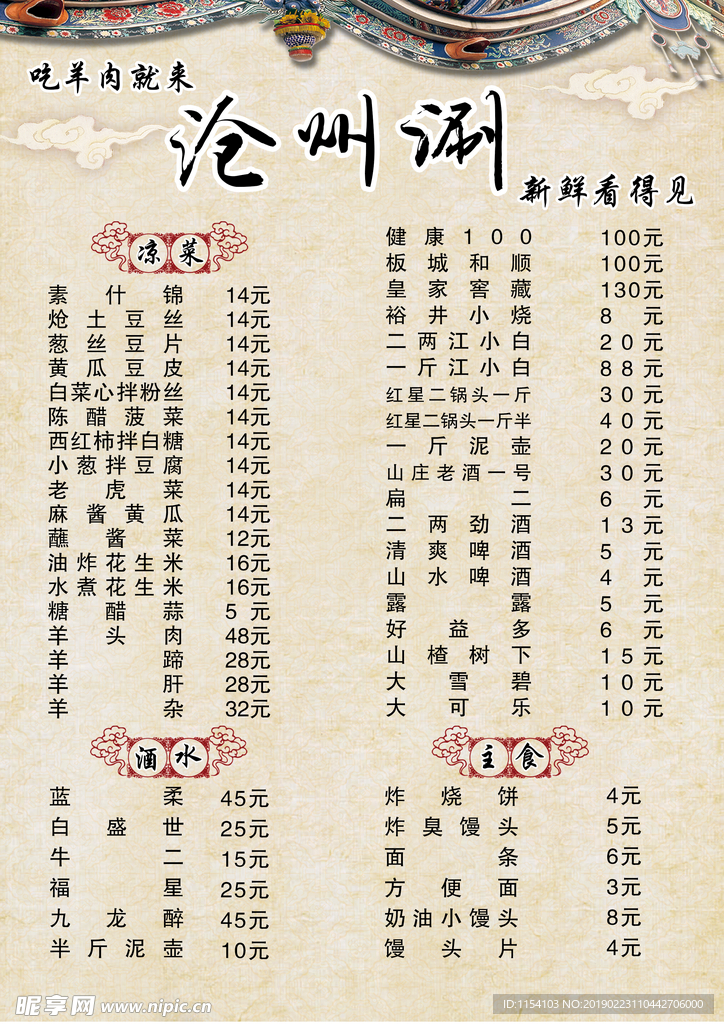 吃羊肉就来
沧州涮
新鲜看得见
凉菜
素什锦 14元
炝土豆丝 14元
葱丝豆片 14元
黄瓜豆皮 14元
白菜心拌粉丝 14元
陈醋菠菜 14元
西红柿拌白糖 14元
小葱拌豆腐 14元
老虎菜 14元
麻酱黄瓜 14元
蘸酱菜 12元
油炸花生米 16元
水煮花生米 16元
糖醋蒜 5元
羊头肉 48元
羊蹄 28元
羊肝 28元
羊杂 32元
酒水
蓝柔 45元
白盛世 25元
牛二 15元
福星 25元
九龙醉 45元
半斤泥壶 10元
健康100 100元
板城和顺 100元
皇家窖藏 130元
裕井小烧 8元
二两江小白 20元
一斤江小白 88元
红星二锅头一斤 30元
红星二锅头一斤半 40元
一斤泥壶 20元
山庄老酒一号 30元
扁二 6元
二两劲酒 13元
清爽啤酒 5元
山水啤酒 4元
露露 5元
好益多 6元
山楂树下 15元
大雪碧 10元
大可乐 10元
主食
炸烧饼 4元
炸臭馒头 5元
面条 6元
方便面 3元
奶油小馒头 8元
馒头片 4元
昵享网 www.nipic.cn
ID:1154103 NO:20190223110442706000